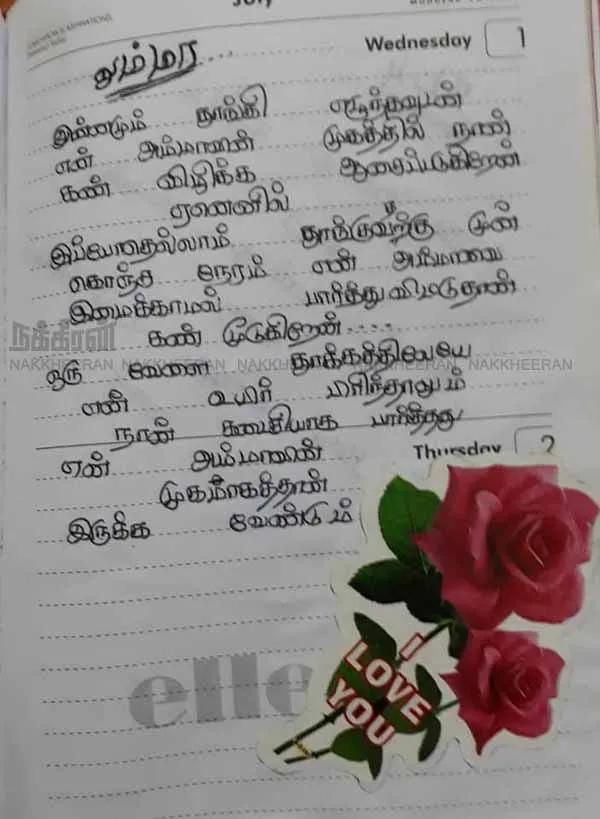 July
Wednesday 1
அம்மா...
அன்னமும் தூங்கி எழுந்தவுடன்
என் அம்மாவின் முகத்தில் நான்
கண் விழிக்க ஆசைப்படுகிறேன்
ஏனெனில்
இப்போதெல்லாம் தூங்குவதற்கு முன்
கொஞ்ச நேரம் என் அம்மாவை
இமைக்காமல் பார்த்து விட்டுதான்
கண் மூடுகிறேன்....
நக்கீரன்
NAKKHEERAN NAKKHEERAN NAKKHEERAN NAKKHEERAN NAKKHEERAN
ஒரு வேளை தூக்கத்திலேயே
என் உயிர் பிரிந்தாலும்
நான் கடைசியாக பார்த்தது
Thursday 2
என் அம்மாவின்
முகமாகத்தான்
இருக்க வேண்டும்
I
LOVE
YOU
elle